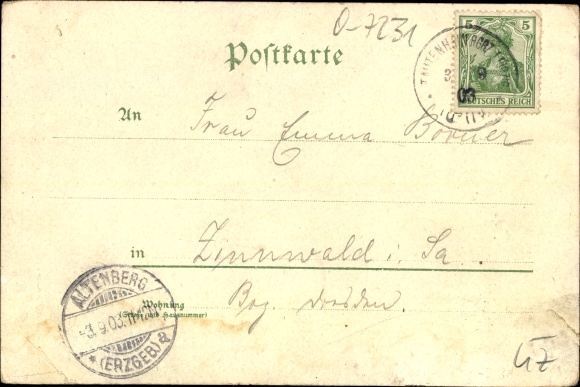 0-7231
Postkarte
5 5
DEUTSCHES REICH
TAUTENHAIN
3 9
03
An Frau Emma Borner
in Zinnwald i. Sa
Wohnung
(Straße und Hausnummer)
Bez. Dresden.
ALTENBERG
-3.9.03.
* (ERZGEB) *